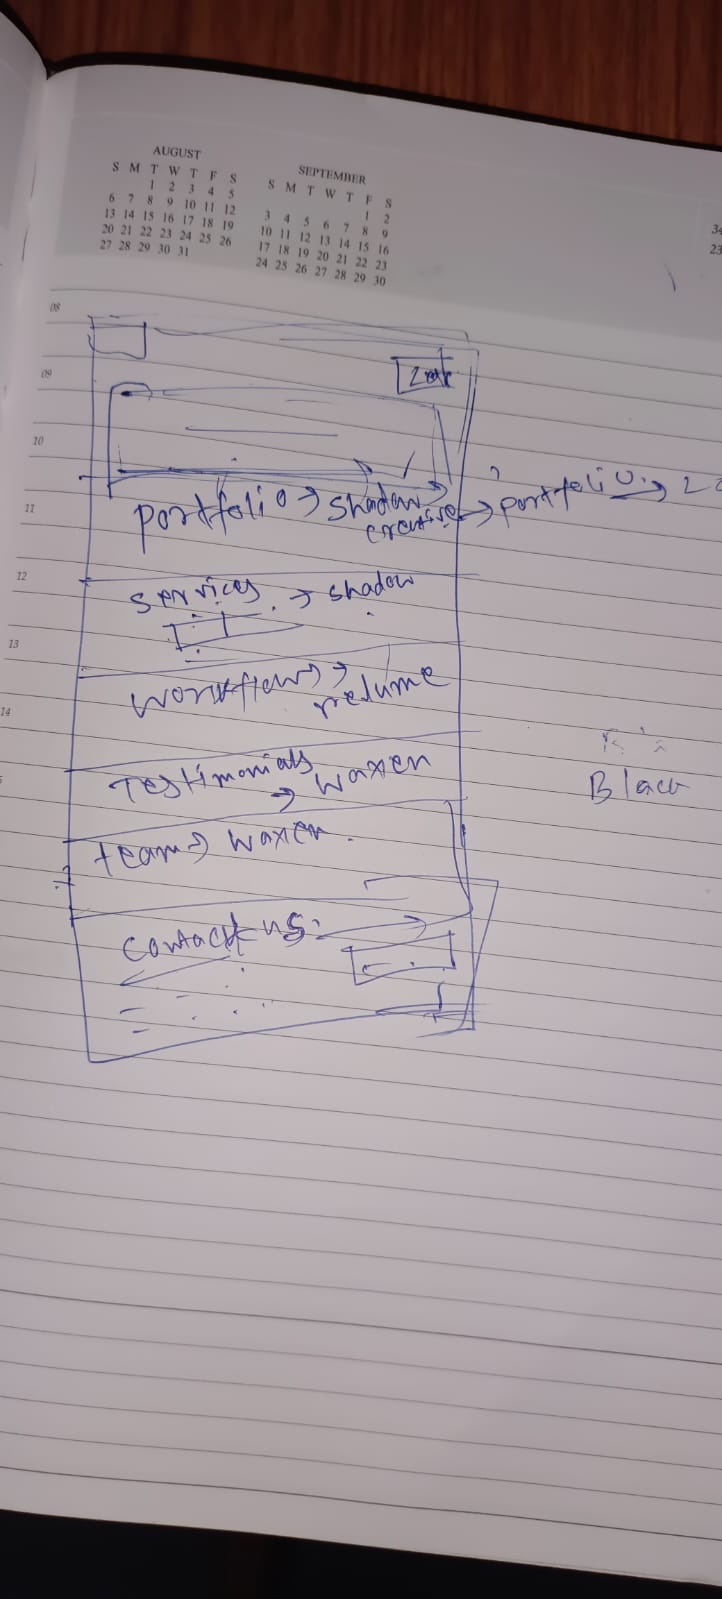 AUGUST
S M T W T F S
1 2 3 4 5
6 7 8 9 10 11 12
13 14 15 16 17 18 19
20 21 22 23 24 25 26
27 28 29 30 31
SEPTEMBER
S M T W T F S
1 2
3 4 5 6 7 8 9
10 11 12 13 14 15 16
17 18 19 20 21 22 23
24 25 26 27 28 29 30
34
23
08
09
10
11
12
13
14
portfolio → shadow
creative → portfolio → 2
services → shadow
workflow →
resume
Testimonials
→ waxen
team → waxen
contact us
Black